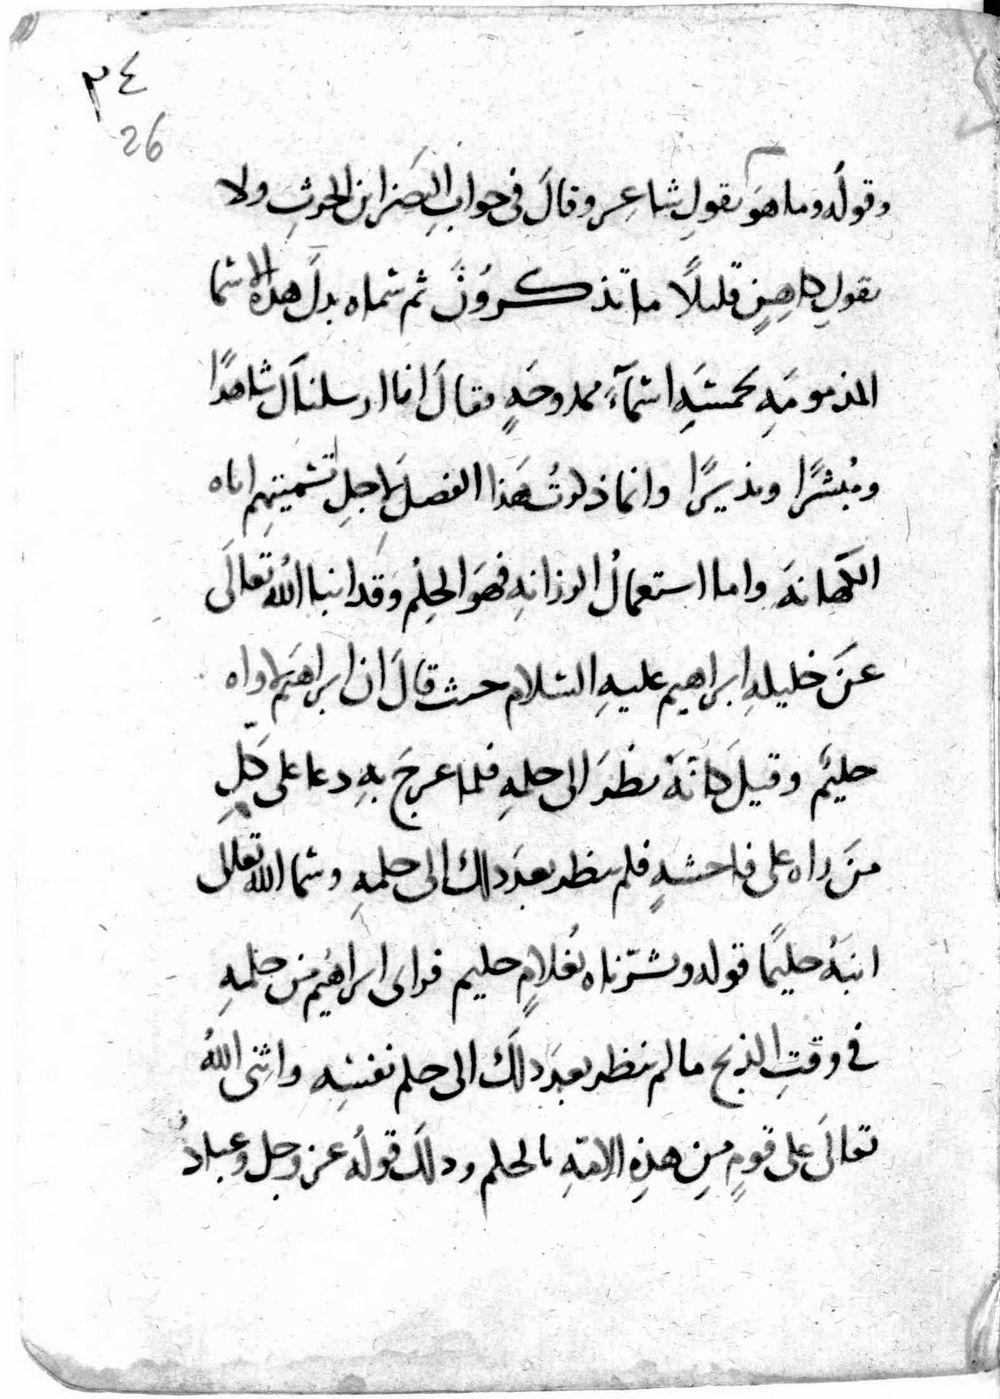 ٣٤
26
وقوله وما هو بقول شاعر وقال في جواب النضر ابن الحرث ولا
بقول كاهن قليلًا ما تذكرون ثم سماه بدل هذه الاسما
المذمومه بخمسه اسمآء ممدوحه فقال انا ارسلناك شاهدًا
ومبشرًا ونذيرًا وانما ذكرت هذا الفصل لاجل تسميتهم اياه
الكهانه واما استعمال الوزانه فهو الحلم وقد انبا الله تعالى
عن خليله ابراهيم عليه السلام حيث قال ان ابراهيم لاواه
حليم وقيل كانه نظر الى حلمه فلما عرج به دعا على كل
من راه على فاحشه فلم ينظر بعد ذلك الى حلمه وسما الله تعالى
ابنه حليمًا قوله وبشرناه بغلام حليم فراى ابراهيم من حلمه
في وقت الذبح ما لم ينظر بعد ذلك الى حلم نفسه واثنى الله
تعالى على قوم من هذه الامه بالحلم وذلك قوله عز وجل وعباد